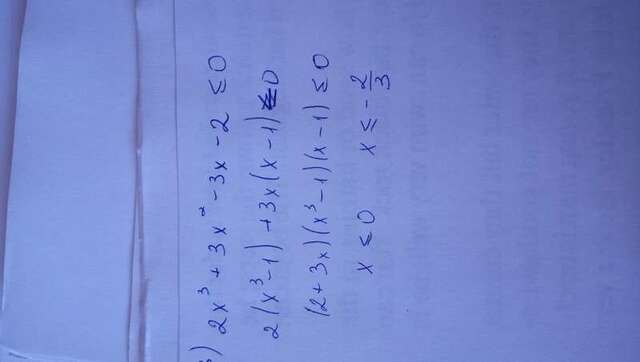 ) 2x³ + 3x² - 3x - 2 ≤ 0
2(x³-1) + 3x(x-1) ≤ 0
(2+3x)(x³-1)(x-1) ≤ 0
x ≤ 0 x ≤ -2/3